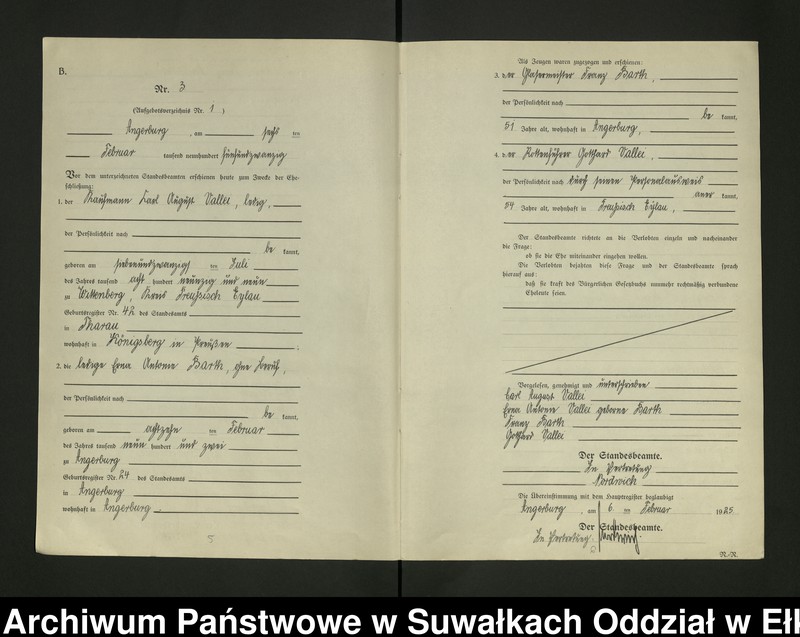 B.
Nr. 3
(Aufgebotsverzeichnis Nr. 1 )
Angerburg , am sechs ten
Februar tausend neunhundert fünfundzwanzig
Vor dem unterzeichneten Standesbeamten erschienen heute zum Zwecke der Ehe-
schließung:
1. der Kaufmann Karl August Vallei, ledig,
der Persönlichkeit nach
be kannt,
geboren am siebenundzwanzigsten Juli
des Jahres tausend acht hundert neunzig und neun
zu Wittenberg, Kreis Preußisch Eylau
Geburtsregister Nr. 42 des Standesamts
in Tharau
wohnhaft in Königsberg in Preußen ;
2. die ledige Erna Antonie Barth, ohne Beruf,
der Persönlichkeit nach
be kannt,
geboren am achtzehn ten Februar
des Jahres tausend neun hundert und zwei
zu Angerburg
Geburtsregister Nr. 24 des Standesamts
in Angerburg
wohnhaft in Angerburg.
5
Als Zeugen waren zugezogen und erschienen:
3. der Glasermeister Franz Barth,
der Persönlichkeit nach
be kannt,
51 Jahre alt, wohnhaft in Angerburg,
4. der Rottenführer Gotthard Vallei,
der Persönlichkeit nach durch seinen Personalausweis
aner kannt,
54 Jahre alt, wohnhaft in Preußisch Eylau,
Der Standesbeamte richtete an die Verlobten einzeln und nacheinander
die Frage:
ob sie die Ehe miteinander eingehen wollen.
Die Verlobten bejahten diese Frage und der Standesbeamte sprach
hierauf aus:
daß sie kraft des Bürgerlichen Gesetzbuchs nunmehr rechtmäßig verbundene
Eheleute seien.
Vorgelesen, genehmigt und unterschrieben
Karl August Vallei
Erna Antonie Vallei geborene Barth
Franz Barth
Gotthard Vallei
Der Standesbeamte.
In Vertretung
Nordwich
Die Übereinstimmung mit dem Hauptregister beglaubigt
Angerburg , am 6 ten Februar 1925
Der Standesbeamte.
In Vertretung
N.-R.
Archiwum Państwowe w Suwałkach Oddział w Ełk